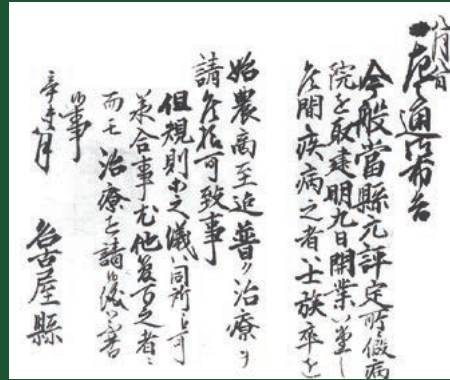 八月八日
一 左之通布告
今般當縣元評定所ニ假病
院を取建明九日開業いたし
候間疾病之者ハ士族卒を
始農商至迄普ク治療ヲ
請候様可致事
但規則等之儀ハ同所ニ而可
承合事尤他管下之者ニ
而モ治療を請候儀不苦
候事
辛未八月
名古屋縣